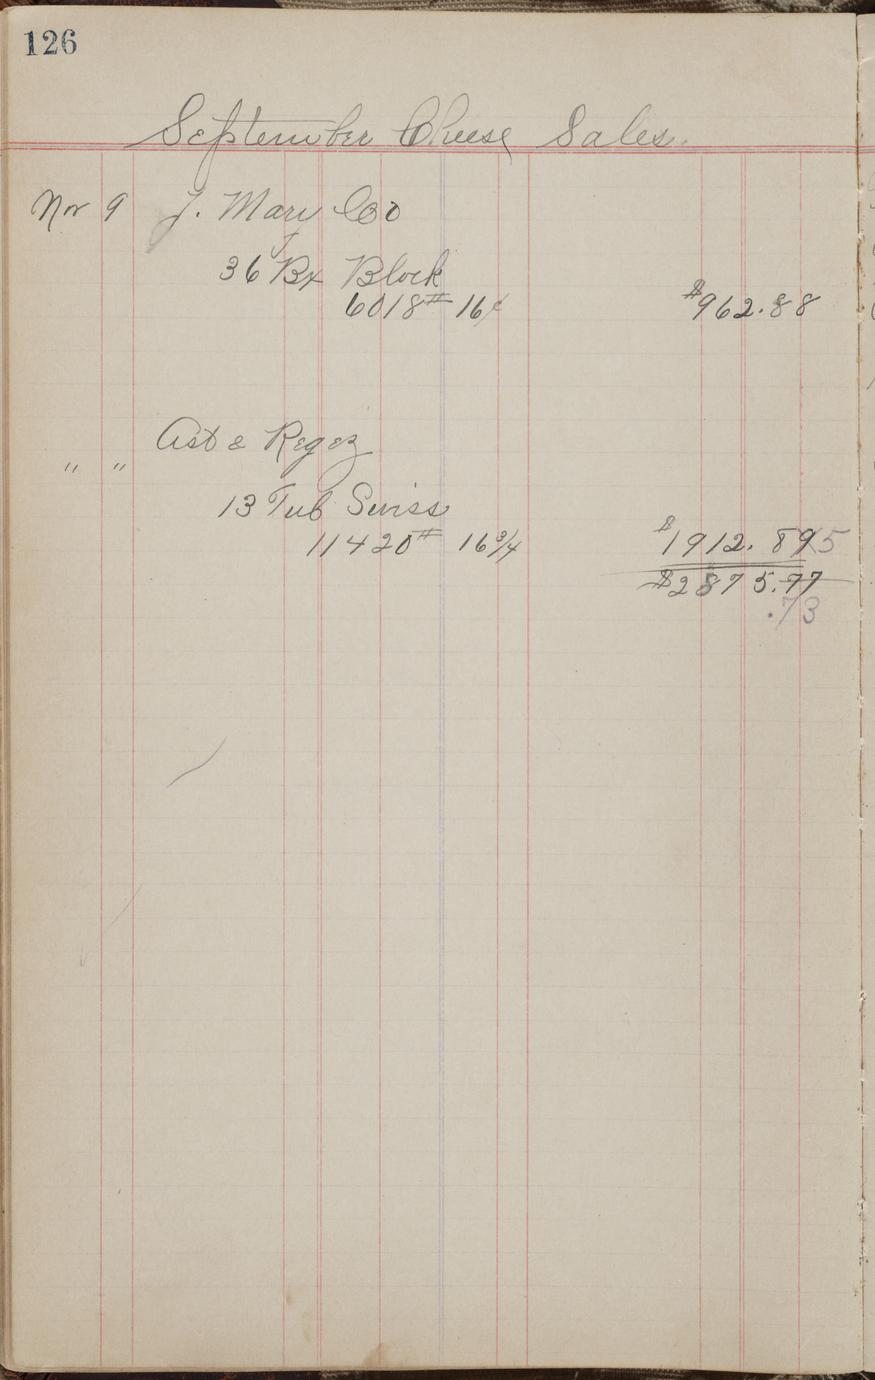 126
September Cheese Sales.
Nov 9 J. Mary Co
36 Bx Block
6018# 16¢ $962.88
Ast & Regez
" "
13 Tub Swiss
11420# 16 3/4 $1912.89 5
$2875.77
.73